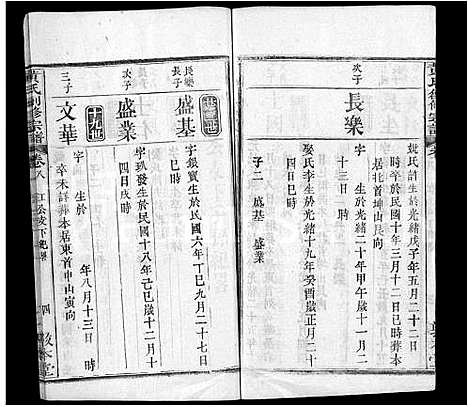 媲氏許生於光緒戊子年五月二十二日
時歿於民國十年三月十二日巳時葬本
居北首坤山艮向
次子
長樂
字 生於光緒二十年甲午歲十一月二
十三日 時
娶氏李生於光緒十九年癸酉歲正月二十
四日巳時
子二 盛基 盛業
長樂
長子
盛基
字銀寶生於民國六年丁巳九月二十七日
時
次子
盛業
字 發生於民國十八年己巳歲十二月十
四日戌時
三子
文華
字 生於 年八月十三日 時
卒未詳葬本居東首申山寅向
黃氏 修宗譜
卷八
江公支下
四
敦本堂